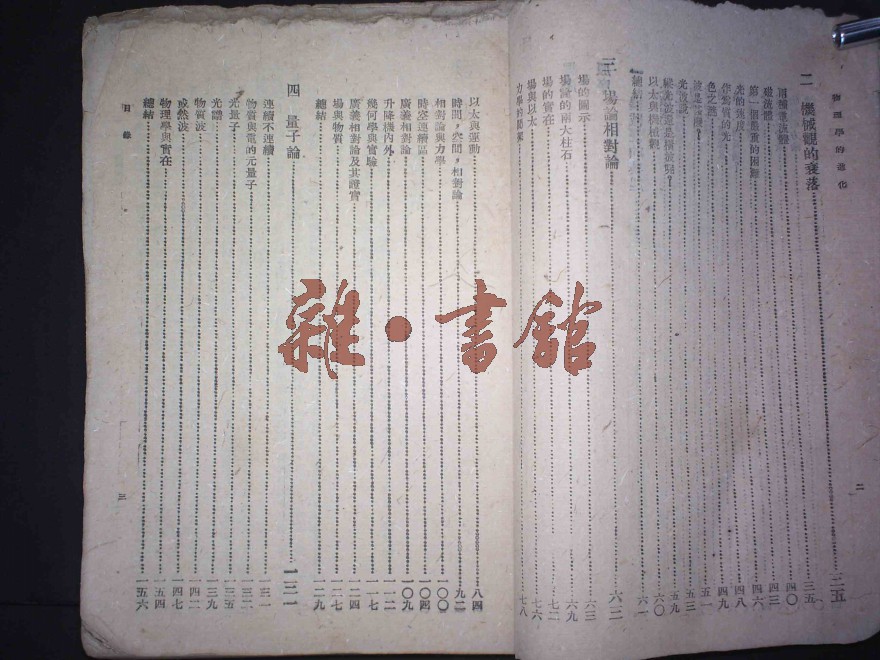 物理學的進化
二 機械觀的衰落
兩種電流體 三五
磁流體 四〇
第一個嚴重的困難 四三
光的速度 四八
作為質的光 四九
色之謎 五一
波是什麼？ 五三
光波說 五九
縱光波還是橫光波呢？ 六〇
以太與機械觀
總結
三 場論相對論 六二
場的圖示 六三
場論的兩大柱石 六九
場的實在 七二
場與以太 七六
力學的間架 七八
二
以太與運動 八四
時間，空間，相對論 九二
相對論與力學 一〇〇
時空連續區 一〇四
廣義相對論 一〇九
升降機內外 一一二
幾何學與實驗 一一七
廣義相對論及其證實 一二四
場與物質 一二七
總結 一二九
四 量子論 一三一
連續不連續 一三一
物質與電的元量子 一三二
光量子 一三五
光譜 一三九
物質波 一四二
或然波 一四七
物理學與實在 一五四
總結 一五六
目錄
三
雜·書館